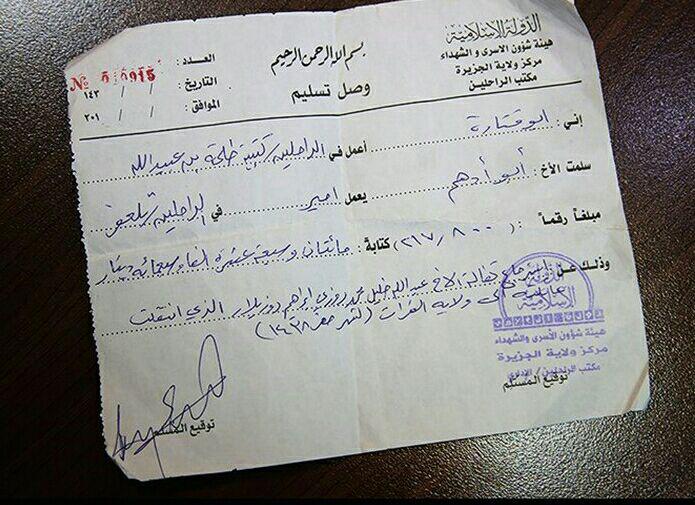 الدولة الاسلامية
هيئة شؤون الاسرى و الشهداء
مركز ولاية الجزيرة
مكتب الراحلين
بسم الله الرحمن الرحيم
وصل تسليم
العدد :
№ 000915
التاريخ : / / ١٤٣
الموافق : / / ٢٠١
إني : ابو قتادة أعمل في الراحلين / كتيبة طلحة بن عبيد الله
سلمت الأخ : أبو أدهم يعمل امير في الراحلين / تلعفر
مبلغاً رقماً : (٢١٧/٨٠٠) كتابة : مائتان وسبعة عشرة الفا و دينار
وذلك عن كفالة الاخ عبد الله خليل محمد ابراهيم الذي انتقلت
عائلته الى ولاية الفرات (لشهر صفر ١٤٣٨)
الاسلامية
هيئة شؤون الأسرى والشهداء
مركز ولاية الجزيرة
مكتب الراحلين /
توقيع المستلم
توقيع المسلم